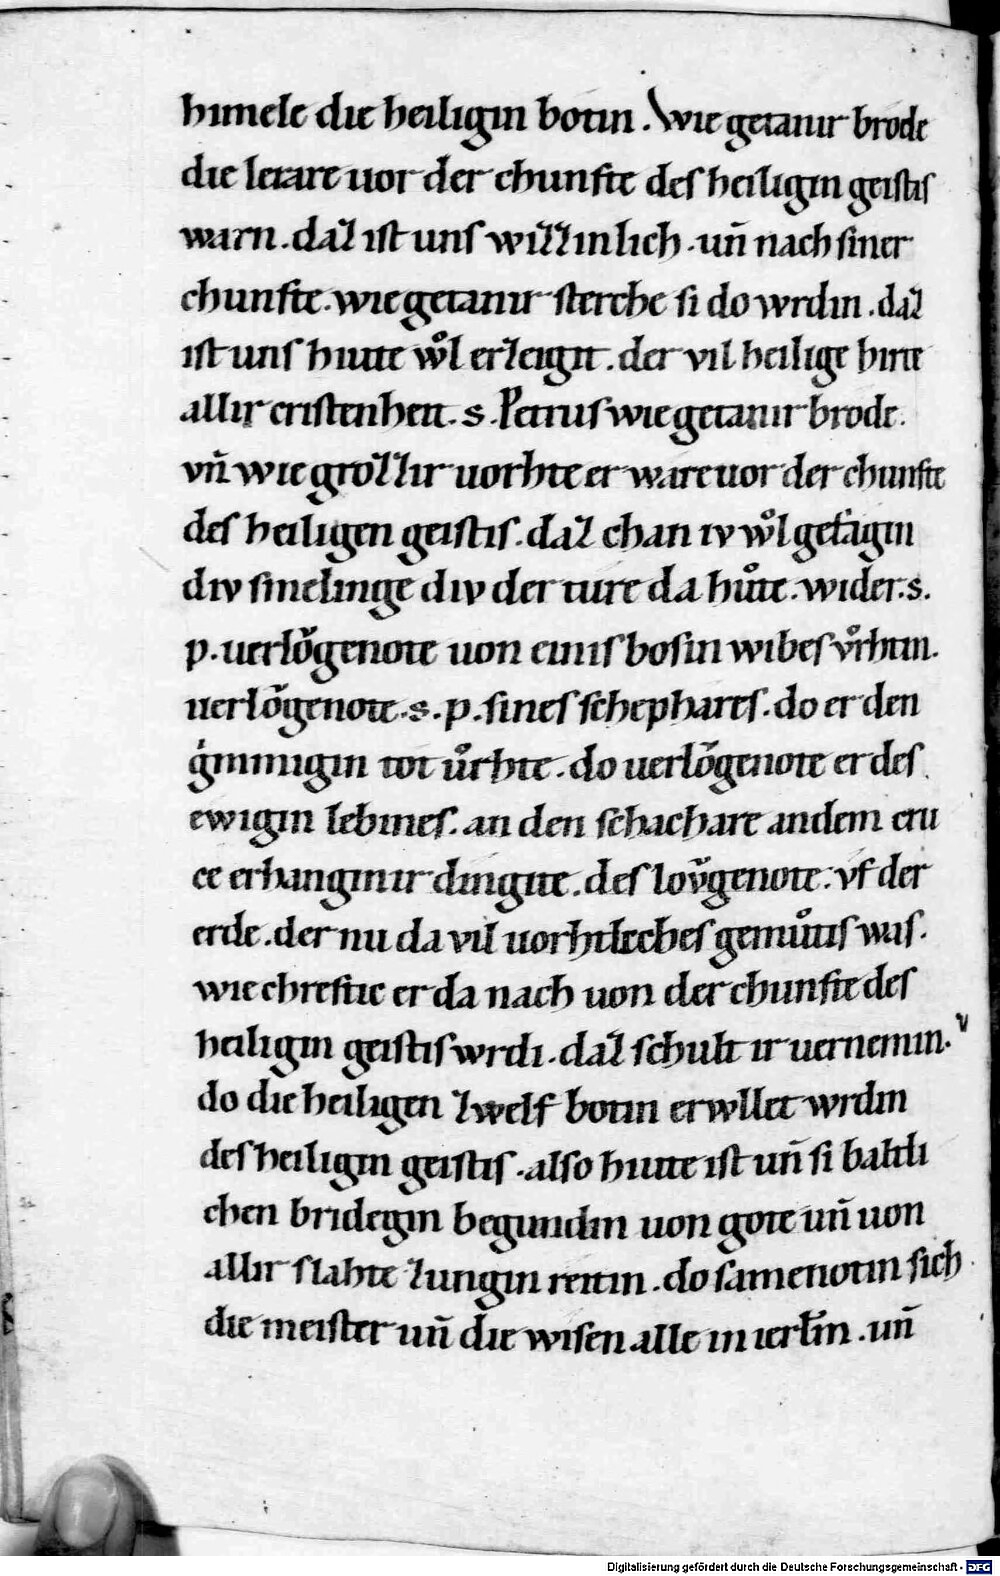 himele die heiligin botin. Wie getanir brode
die lerare uor der chunfte des heiligin geistis
warn. daz ist uns wizzinlich. un̄ nach siner
chunfte. wie getanir sterche si do wrdin. daz
ist uns hiute wͦl erzeigit. der vil heilige hirte
allir cristenheit. s. Petrus wie getanir brode.
vn̄ wie grozzir uorhte er ware uor der chunfte
des heiligen geistis. daz chan iv wͦl gesagin
div sinelinge div der ture da hůte. wider. s.
p. uerlǒgenote uon einis bosin wibes vͦrhtin.
uerlǒgenote. s. p. sines schephares. do er den
gͥnmigin tot vͦrhte. do uerlǒgenote er des
ewigin lebines. an den schachare an dem cru
ce erhanginir dingite. des lovgenote. vf der
erde. der nu da vil uorhtleches gemůtis was.
wie chreftic er da nach uon der chunfte des
heiligin geistis wrdi. daz schult ir uernemin. v
do die heiligen zwelf botin erwllet wrdin
des heiligin geistis. also hiute ist un̄ si baltli
chen bridegin begundin uon gote un̄ uon
allir slahte zungin reitin. do samenotin sich
die meister un̄ die wisen alle in ierłm̄. un̄
Digitalisierung gefördert durch die Deutsche Forschungsgemeinschaft - DFG